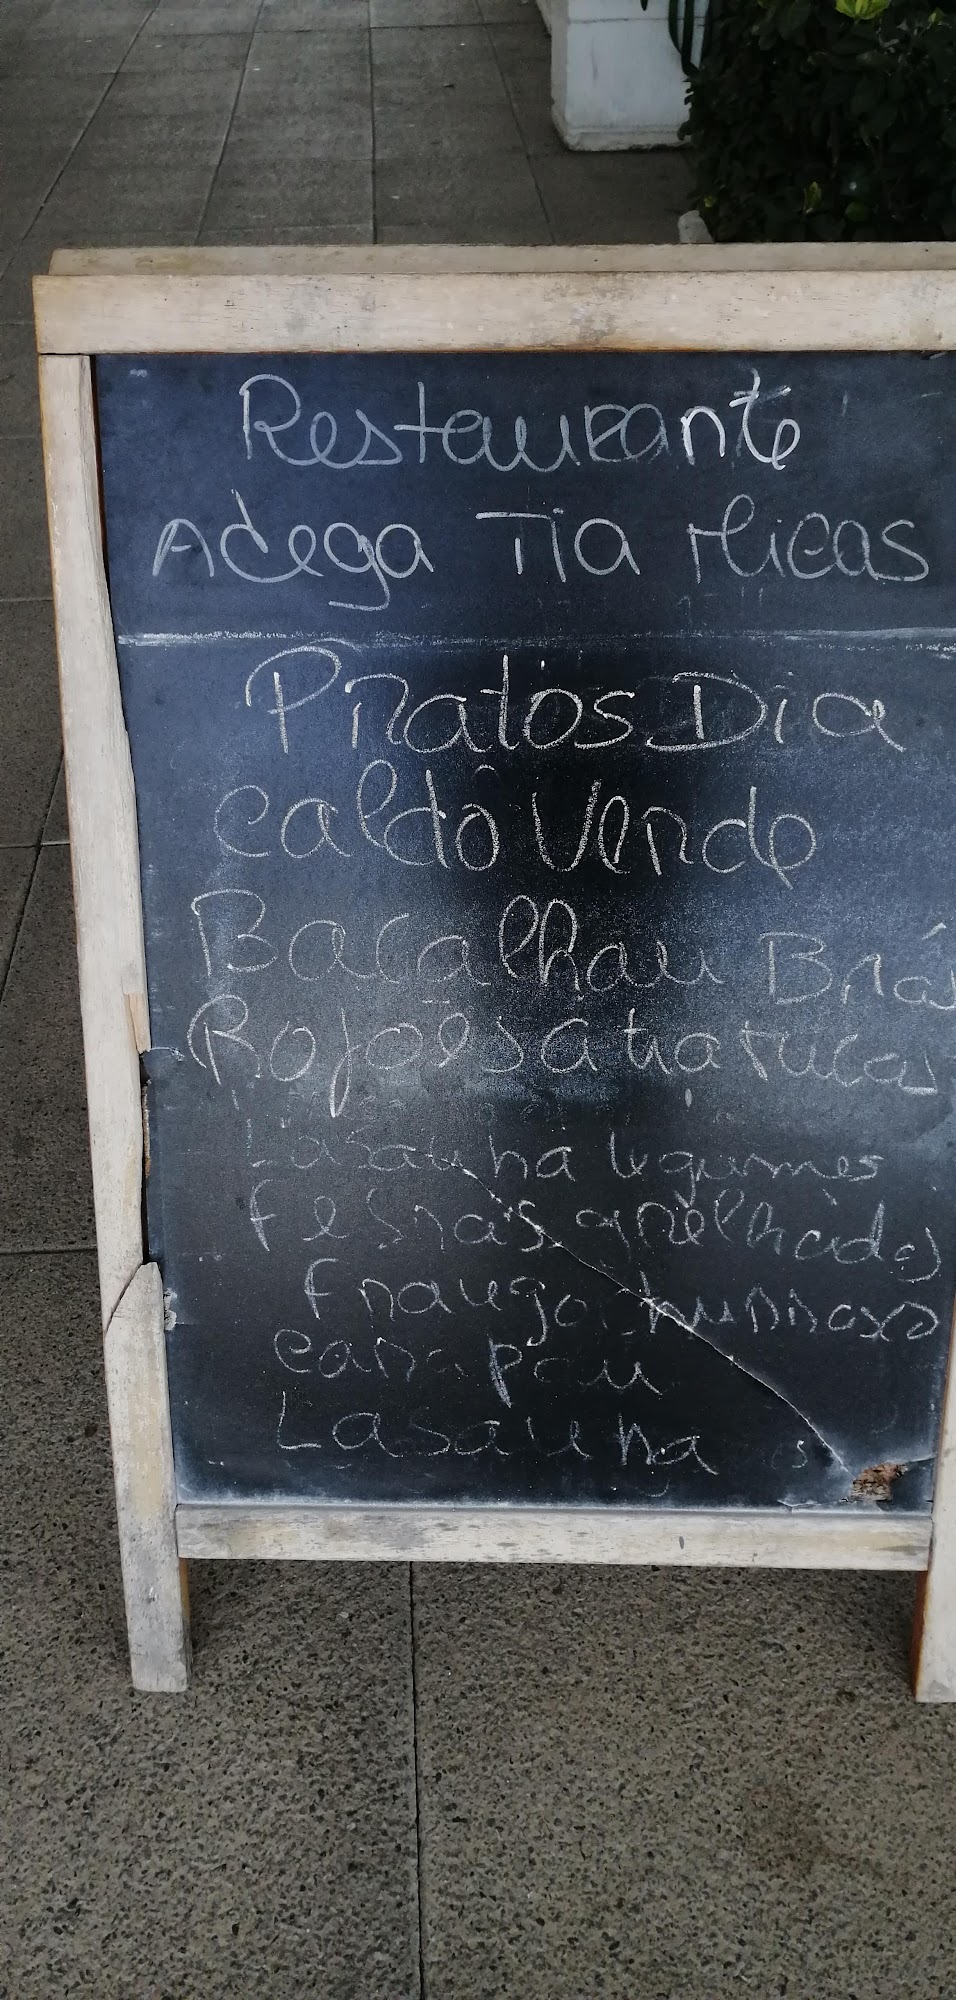 Restaurante
Adega Tia Micas
Pratos Dia
Caldo Verde
Bacalhau Brás
Rojões á tia micas
Lasanha legumes
Febras grelhados
Frango churrasco
Carapau
Lasanha